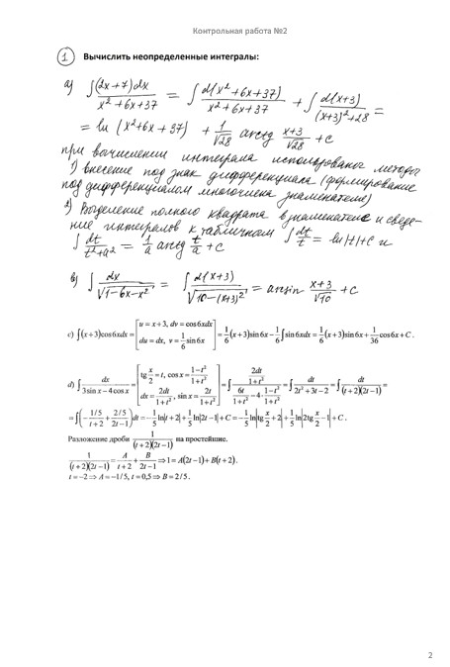 Контрольная работа №2
1 Вычислить неопределенные интегралы:
a) ∫ (2x+7)dx / (x²+6x+37) = ∫ d(x²+6x+37) / (x²+6x+37) + ∫ d(x+3) / ((x+3)²+28) =
= ln (x²+6x+37) + 1/√28 arctg (x+3)/√28 + C
при вычислении интеграла использованы методы
1) внесение под знак дифференциала (формирование
под дифференциалом многочлена знаменателя)
2) Выделение полного квадрата в знаменателе и сведе-
ние интегралов к табличном ∫ dt/t = ln|t|+C и
∫ dt/(t²+a²) = 1/a arctg t/a + C
b) ∫ dx / √(1-6x-x²) = ∫ d(x+3) / √(10-(x+3)²) = arcsin (x+3)/√10 + C
c) ∫(x+3)cos6xdx = [u = x+3, dv = cos6xdx; du = dx, v = 1/6 sin6x] = 1/6 (x+3)sin6x - 1/6 ∫sin6xdx = 1/6 (x+3)sin6x + 1/36 cos6x + C .
d) ∫ dx / (3sin x - 4cos x) = [tg x/2 = t, cos x = (1-t²)/(1+t²); dx = 2dt/(1+t²), sin x = 2t/(1+t²)] = ∫ (2dt/(1+t²)) / (6t/(1+t²) - 4·(1-t²)/(1+t²)) = ∫ dt / (2t²+3t-2) = ∫ dt / ((t+2)(2t-1)) =
= ∫(- (1/5)/(t+2) + (2/5)/(2t-1))dt = -1/5 ln|t+2| + 1/5 ln|2t-1| + C = -1/5 ln|tg x/2 + 2| + 1/5 ln|2tg x/2 - 1| + C .
Разложение дроби 1/((t+2)(2t-1)) на простейшие.
1/((t+2)(2t-1)) = A/(t+2) + B/(2t-1) ⇒ 1 = A(2t-1) + B(t+2).
t = -2 ⇒ A = -1/5, t = 0,5 ⇒ B = 2/5 .
2